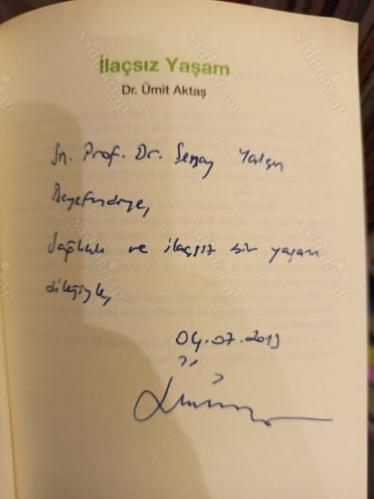 İlaçsız Yaşam
Dr. Ümit Aktaş
Sn. Prof. Dr. Şenay Yalçın
Hanımefendiye,
Sağlıklı ve ilaçsız bir yaşam
dileğiyle,
04.07.2013